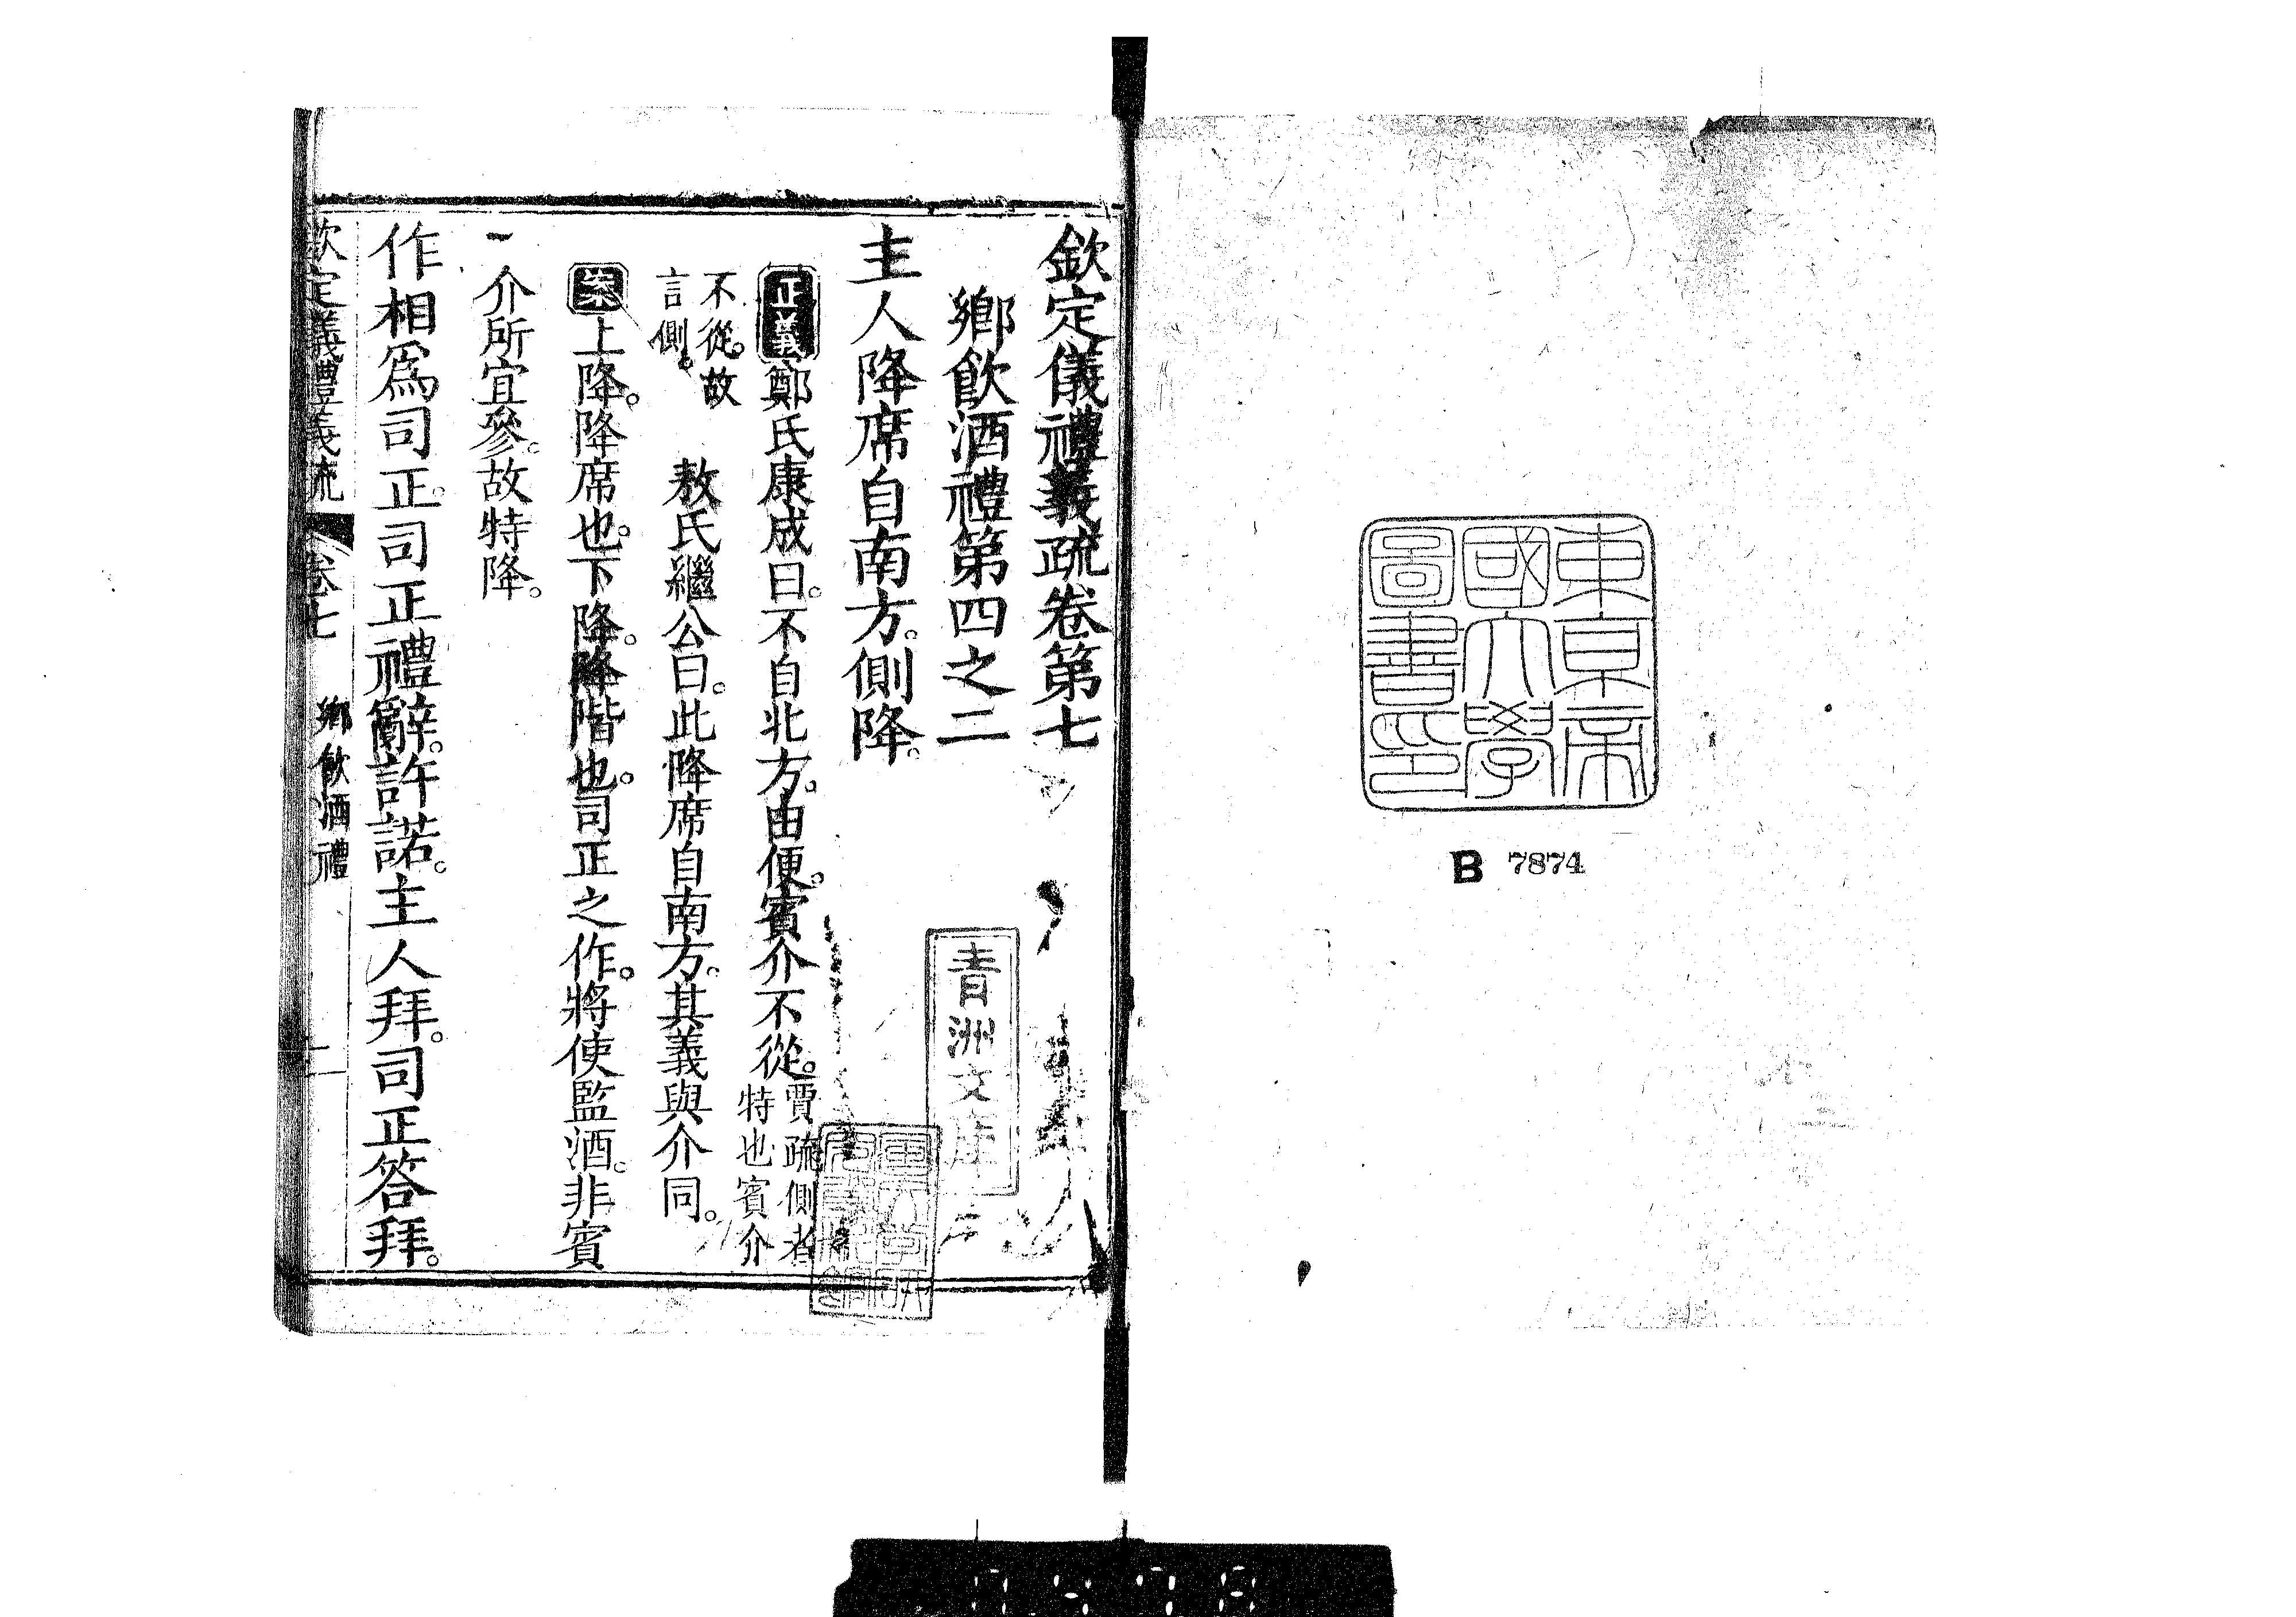 東京帝
國大學
圖書印
B 7874
欽定儀禮義疏卷第七
鄉飲酒禮第四之二
青洲文庫
主人降席自南方。側降。
正義鄭氏康成曰。不自北方。由便。賓介不從。賈疏側者特也賓介
不從。故言側。敖氏繼公曰。此降席自南方。其義與介同。
案上降。降席也。下降。降階也。司正之作。將使監酒。非賓
介所宜參。故特降。
作相爲司正。司正禮辭。許諾。主人拜。司正答拜。
欽定儀禮義疏 卷七 鄉飲酒禮 一